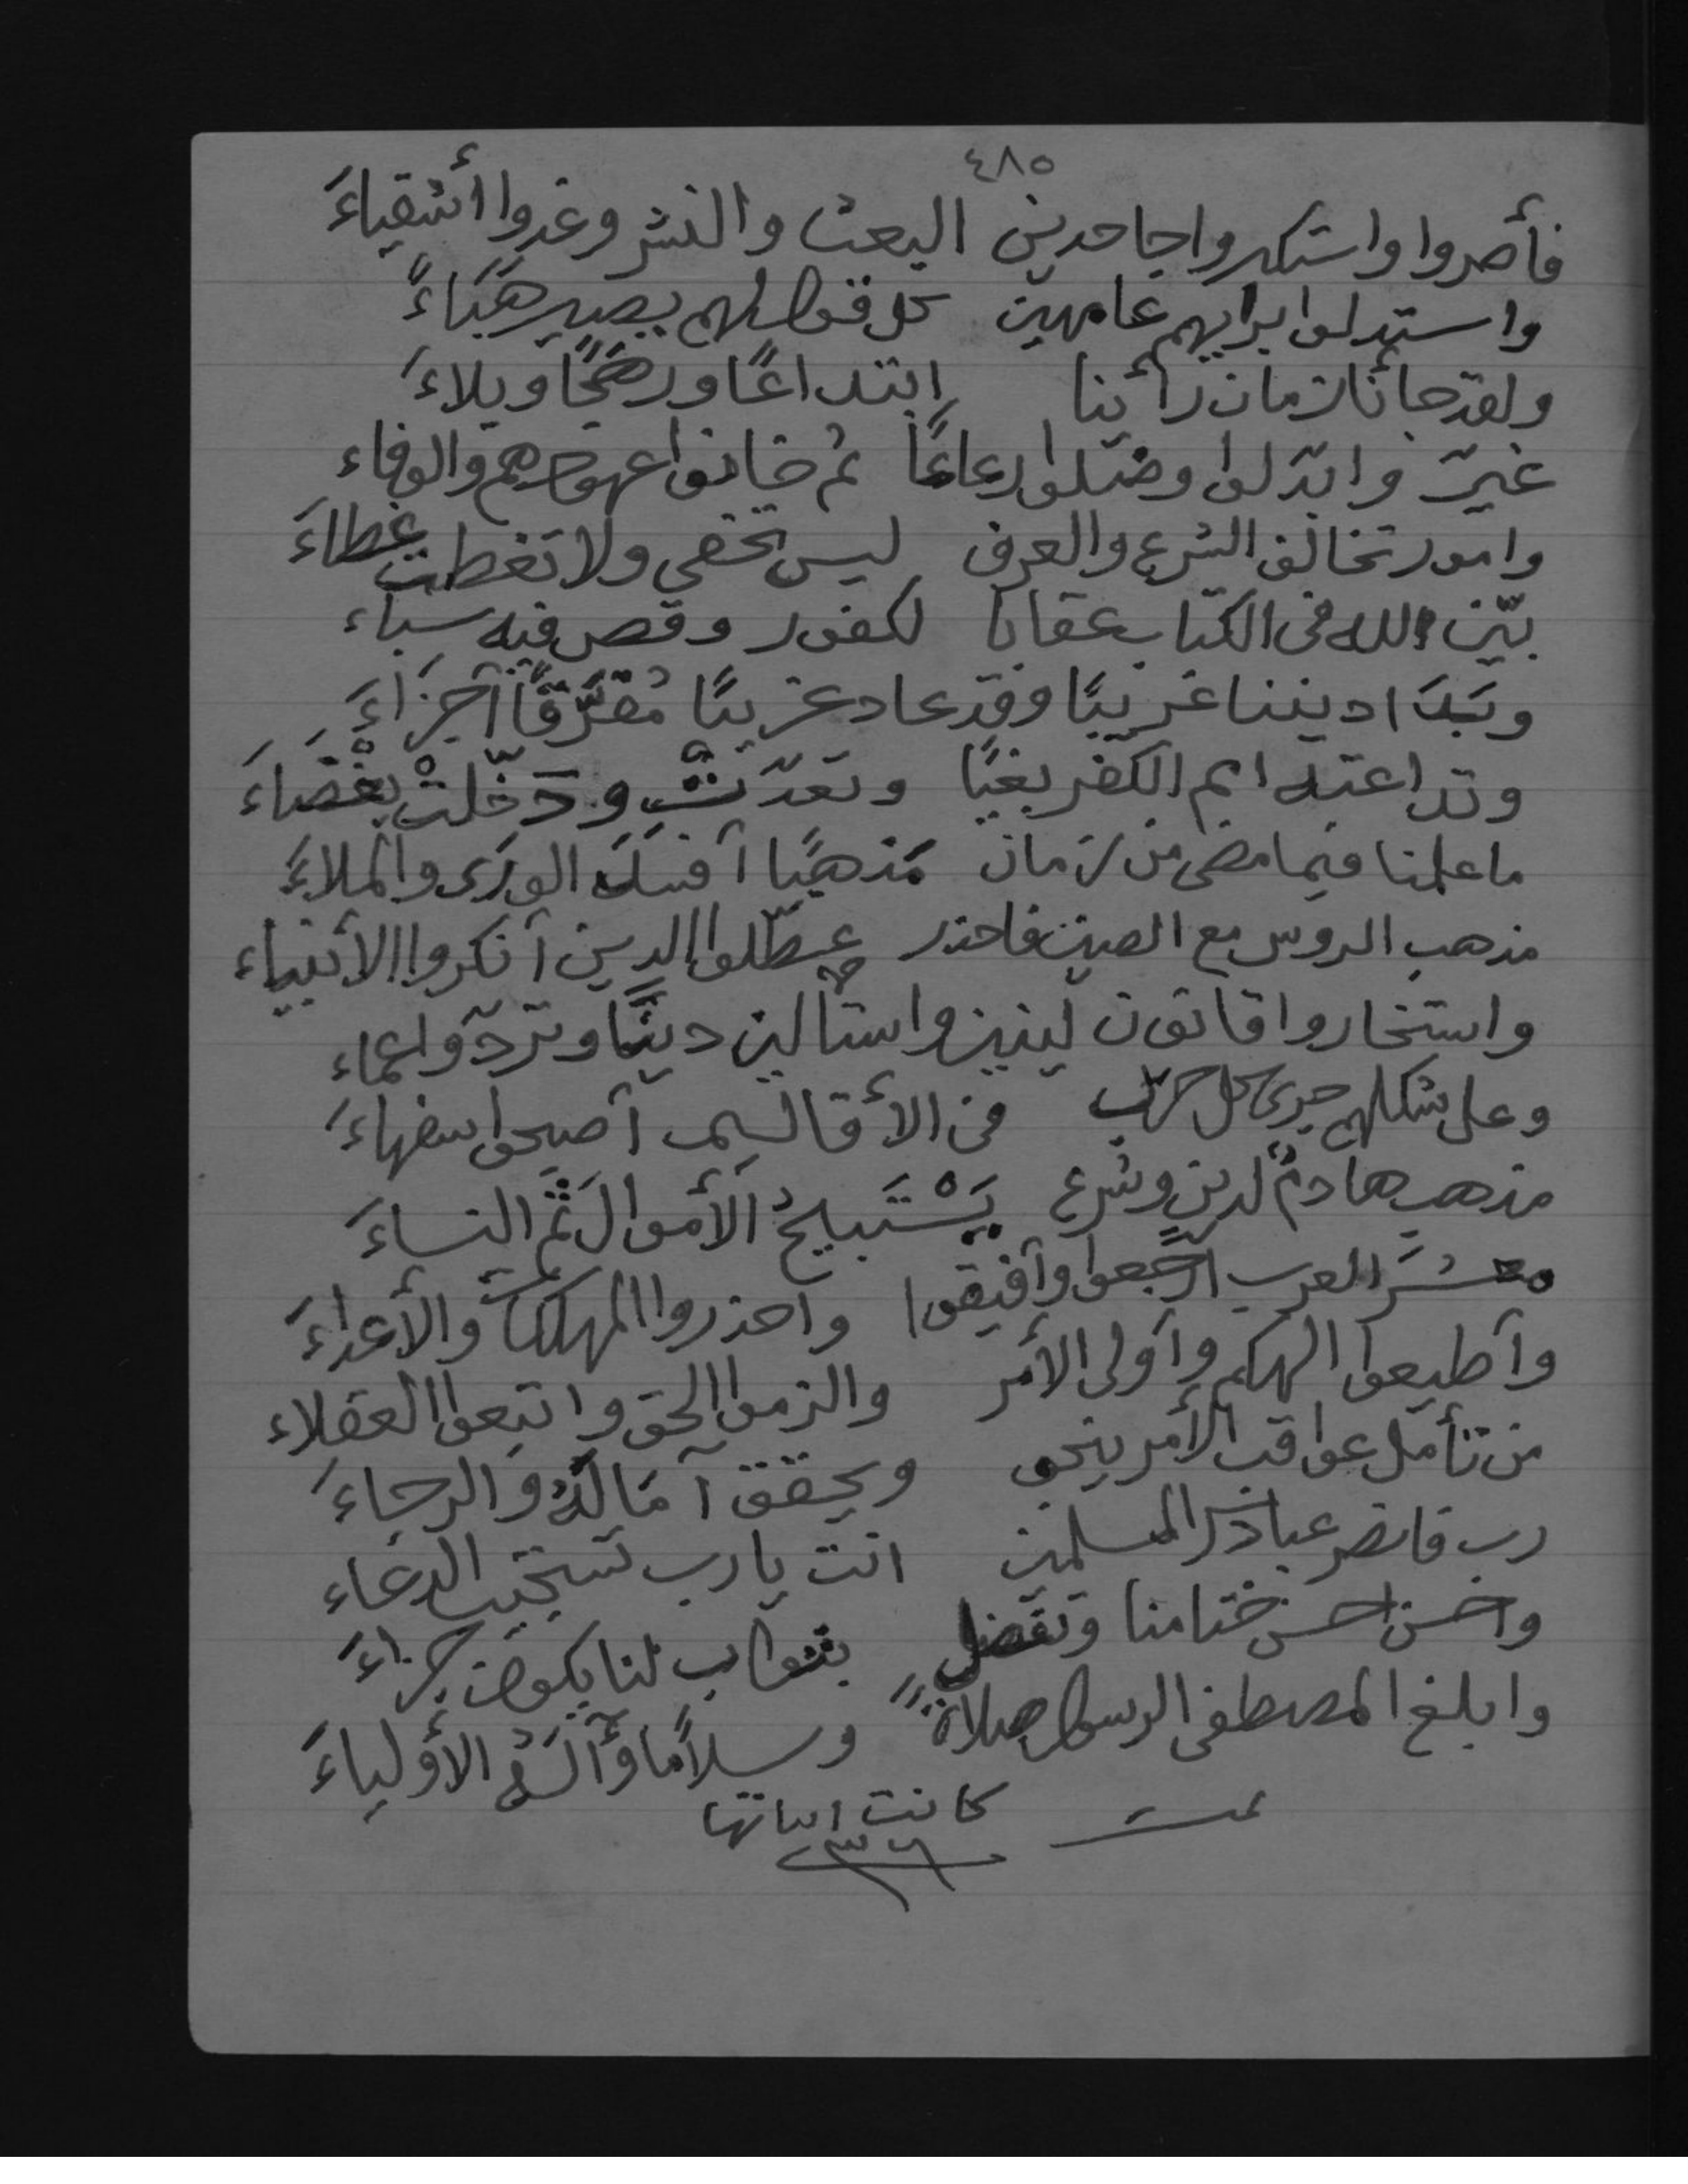 ٤٨٥
فأصروا واستكبروا جاحدين البعث والنشر وغدوا أشقياءَ
واستدلوا برايهم عامهين كل قول لهم يصير هَبَاءً
ولقد جأنا زمان رأينا ابتداعًا ورهجًا وبلاءَ
غيرّ وابدّلوا وضللوا رعاعًا ثم خانوا عهودهم والوفاء
وامور تخالف الشرع والعرف ليس تخفى ولا تغطت غطاءَ
بيّن الله فى الكتاب عقابا لكفور وقص فيه سباء
وبَدَا ديننا غريبًا وقد عاد غريبًا مُفَرَّقًا أجزاءَ
وتداعت امم الكفر بغيًا وتعدّت ودخّلتْ بغْضَاءَ
ما علمنا فيما مضى من زمان مَذهبًا أفسَدَ الورَى والملاءَ
مذهب الروس مع الصين فاحذر عطّلوا الدين أنكروا الأنبياء
واستخاروا قانون لينين واستالين دينًا وتردّوا عماء
وعلى شكلهم جرى كل حزب فى الأقاليم أصبحوا سفهاءَ
مذهب هادمٌ لدين وشرع يَسْتَبيحُ الأموالَ ثم النساءَ
معشرَ العرب ارجعوا وأفيقوا واحذروا المهلكات والأعداءَ
وأطيعوا الهكم وأولى الأمر والزموا الحق واتبعوا العقلاء
من تأمل عواقب الأمر ينجو ويحقق آمَالَهُ والرجاءَ
رب فانصر عبادك المسلمين انت يا رب تستجيب الدعاء
واحسن احسن ختامنا وتفضل بثواب لنا يكون جزاءَ
وابلغ المصطفى الرسول صلاةً وسلامًا وآلَهُ الأولياءَ
تمت كانت ابياتها
٣٦